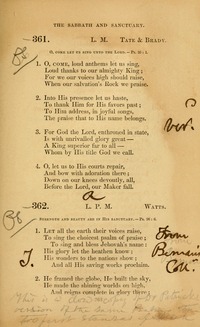 THE SABBATH AND SANCTUARY.
361. L. M. TATE & BRADY.
O, COME LET US SING UNTO THE LORD.—Ps. 95: 1.
1. O, COME, loud anthems let us sing,
Loud thanks to our almighty King;
For we our voices high should raise,
When our salvation's Rock we praise.
2. Into His presence let us haste,
To thank Him for His favors past;
To Him address, in joyful songs,
The praise that to His name belongs.
3. For God the Lord, enthroned in state,
Is with unrivalled glory great—
A King superior far to all—
Whom by His title God we call.
4. O, let us to His courts repair,
And bow with adoration there;
Down on our knees devoutly, all,
Before the Lord, our Maker fall.
a
362. L. P. M. WATTS.
STRENGTH AND BEAUTY ARE IN HIS SANCTUARY.—Ps. 96: 6.
1. LET all the earth their voices raise,
To sing the choicest psalm of praise;
To sing and bless Jehovah's name:
His glory let the heathen know;
His wonders to the nations show;
And all His saving works proclaim.
2. He framed the globe, He built the sky;
He made the shining worlds on high,
And reigns complete in glory there;
ver.
From
Coll.